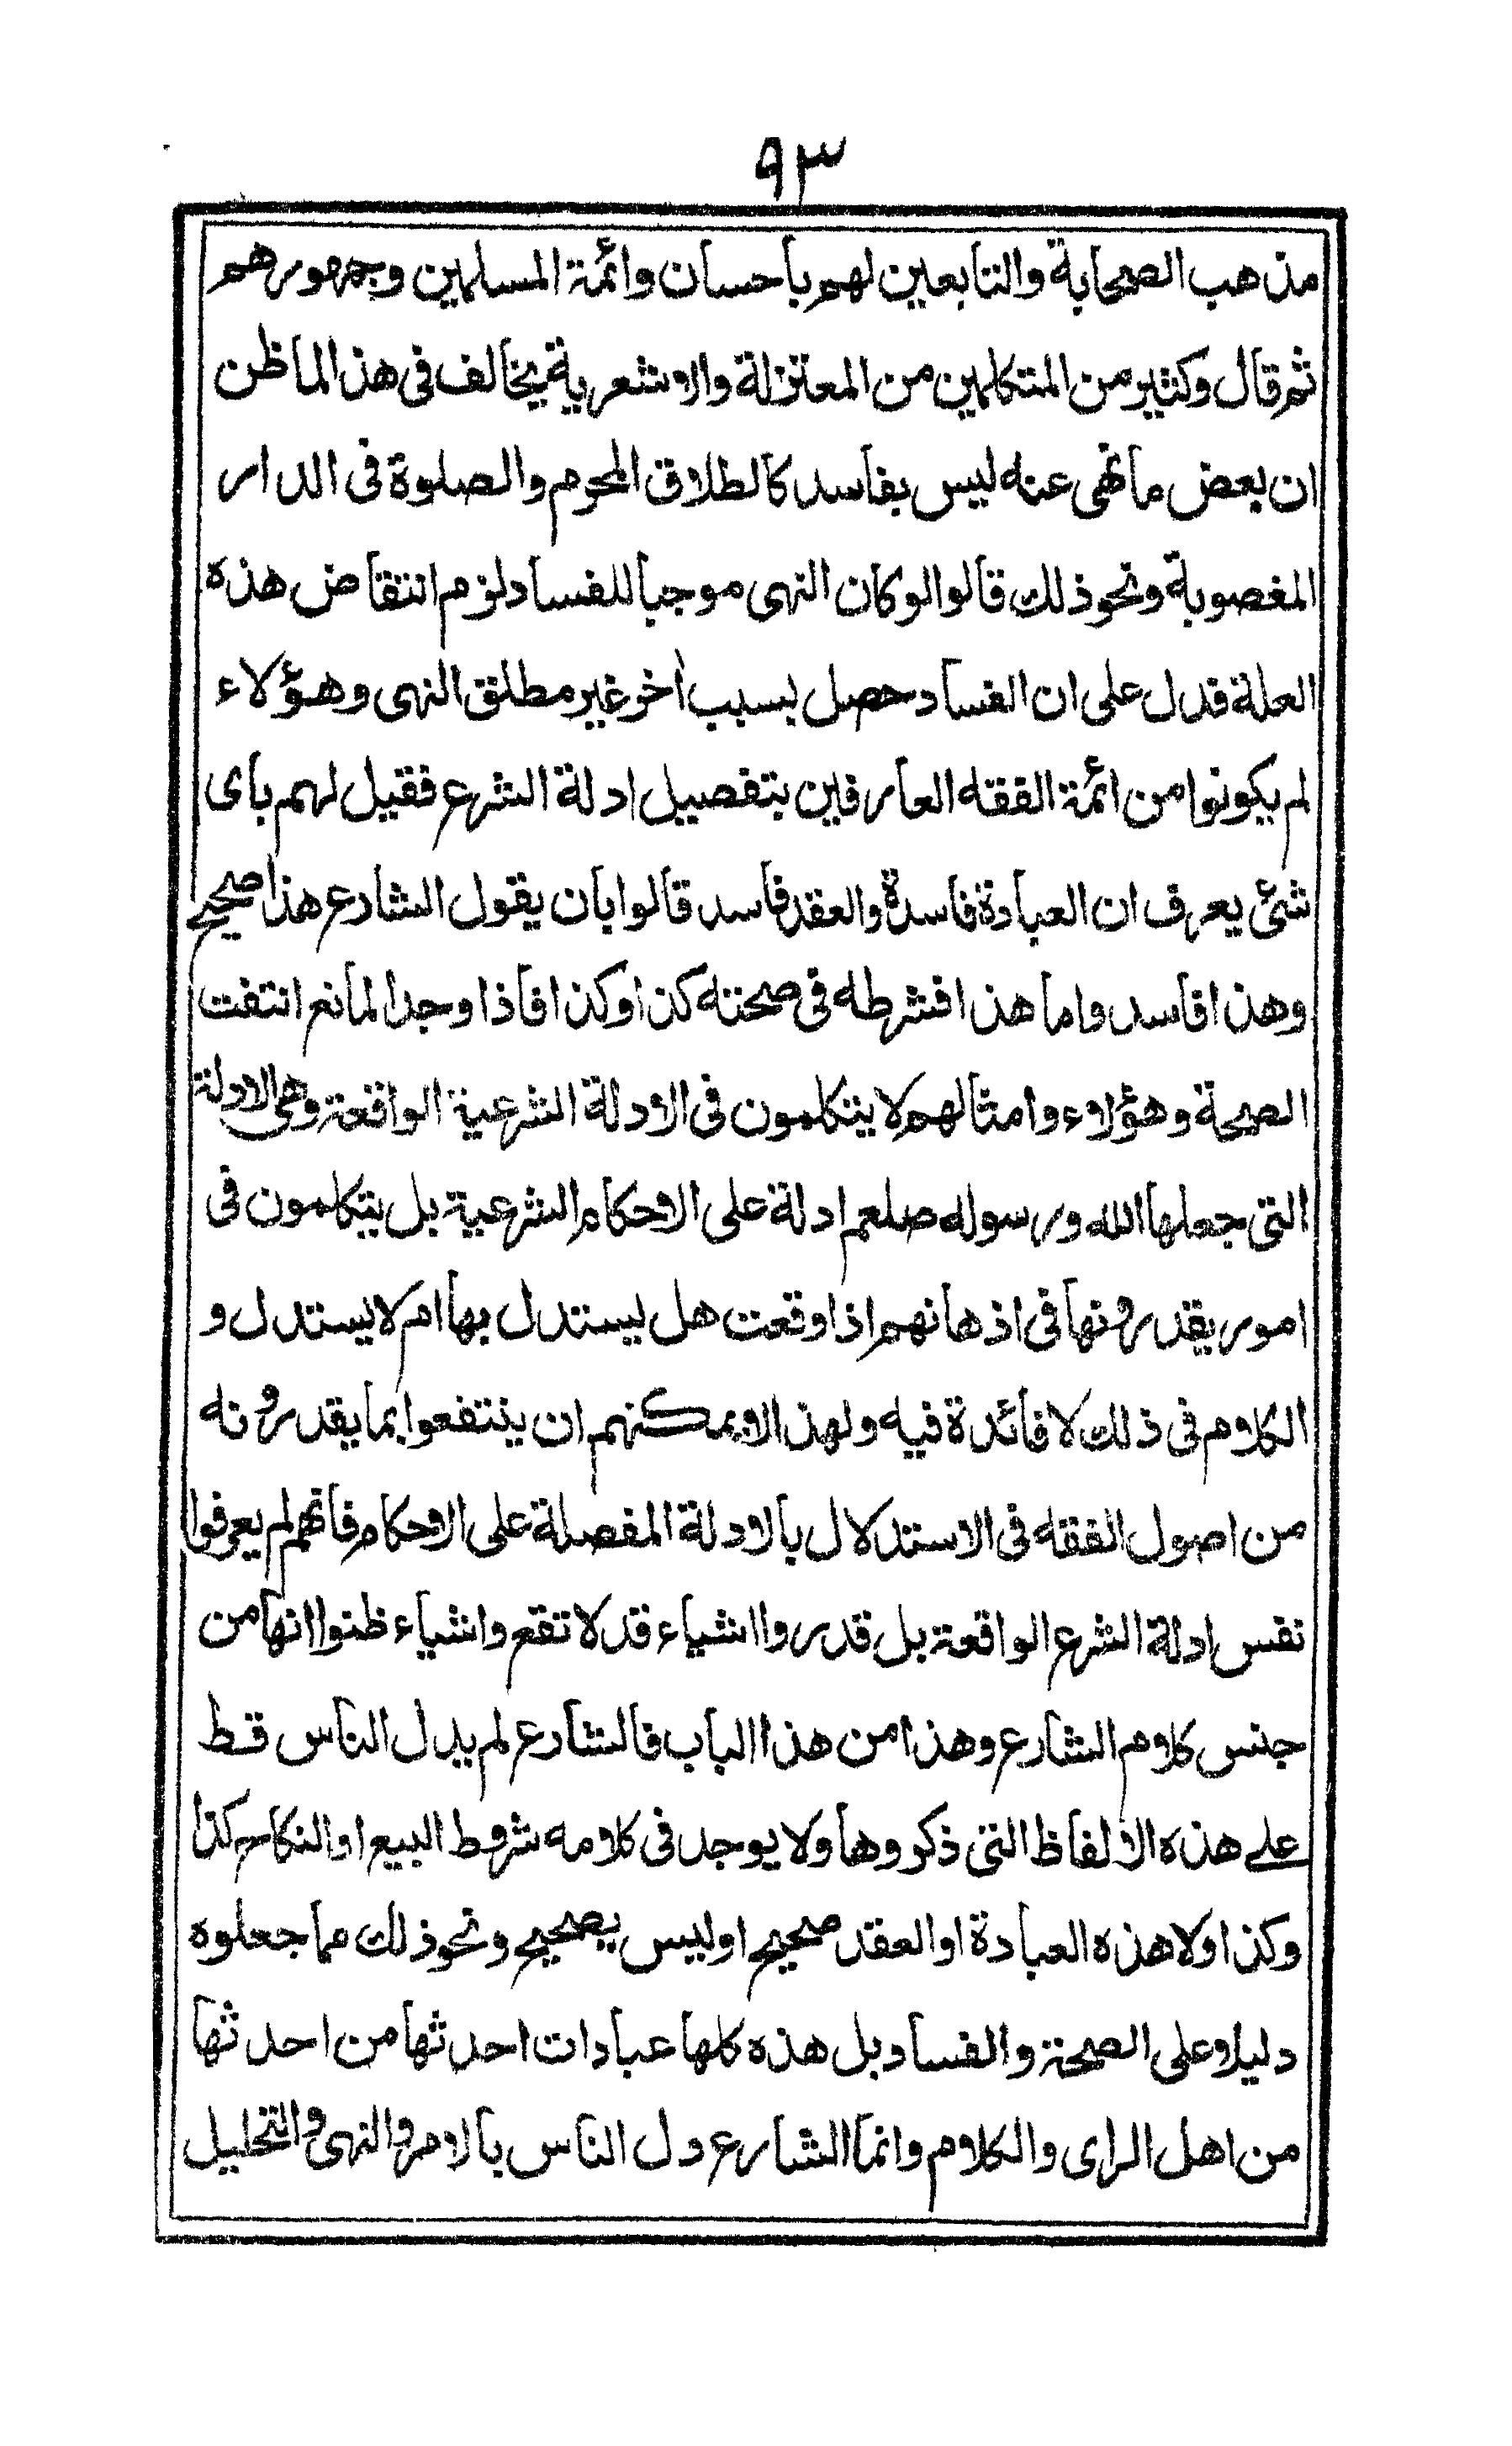 ٩٣
مذهب الصحابة والتابعين لهم بأحسان وائمة المسلمين وجمهورهم
ثم قال وكثير من المتكلمين من المعتزلة والاشعرية يخالف فى هذا لما ظن
ان بعض ما نهى عنه ليس بفاسد كالطلاق المحرم والصلوة فى الدار
المغصوبة ونحو ذلك قالوا لو كان النهى موجبا للفساد لزم انتقاض هذه
العلة فدل على ان الفساد حصل بسبب أخر غير مطلق النهى وهؤلاء
لم يكونوا من ائمة الفقه العارفين بتفصيل ادلة الشرع فقيل لهم باى
شئ يعرف ان العبادة فاسدة والعقد فاسد قالوا بان يقول الشارع هذا صحيح
وهذا فاسد واما هذا فشرطه فى صحته كذا وكذا فاذا وجد المانع انتفت
الصحة وهؤلاء وامثالهم لا يتكلمون فى الادلة الشرعية الواقعة وهى الادلة
التى جعلها الله ورسوله صلعم ادلة على الاحكام الشرعية بل يتكلمون فى
امور يقدرونها فى اذهانهم اذا وقعت هل يستدل بها ام لا يستدل و
الكلام فى ذلك لا فائدة فيه ولهذا لا يمكنهم ان ينتفعوا بما يقدرونه
من اصول الفقه فى الاستدلال بالادلة المفصلة على الاحكام فانهم لم يعرفوا
نفس ادلة الشرع الواقعة بل قدروا اشياء قد لا تقع واشياء ظنوا انها من
جنس كلام الشارع وهذا من هذا الباب فالشارع لم يدل الناس قط
على هذه الالفاظ التى ذكروها ولا يوجد فى كلامه شروط البيع او النكاح كذا
وكذا ولا هذه العبادة او العقد صحيح او ليس بصحيح ونحو ذلك مما جعلوه
دليلا على الصحة والفساد بل هذه كلها عبادات احدثها من احدثها
من اهل الراى والكلام وانما الشارع دل الناس بالامر والنهى والتحليل